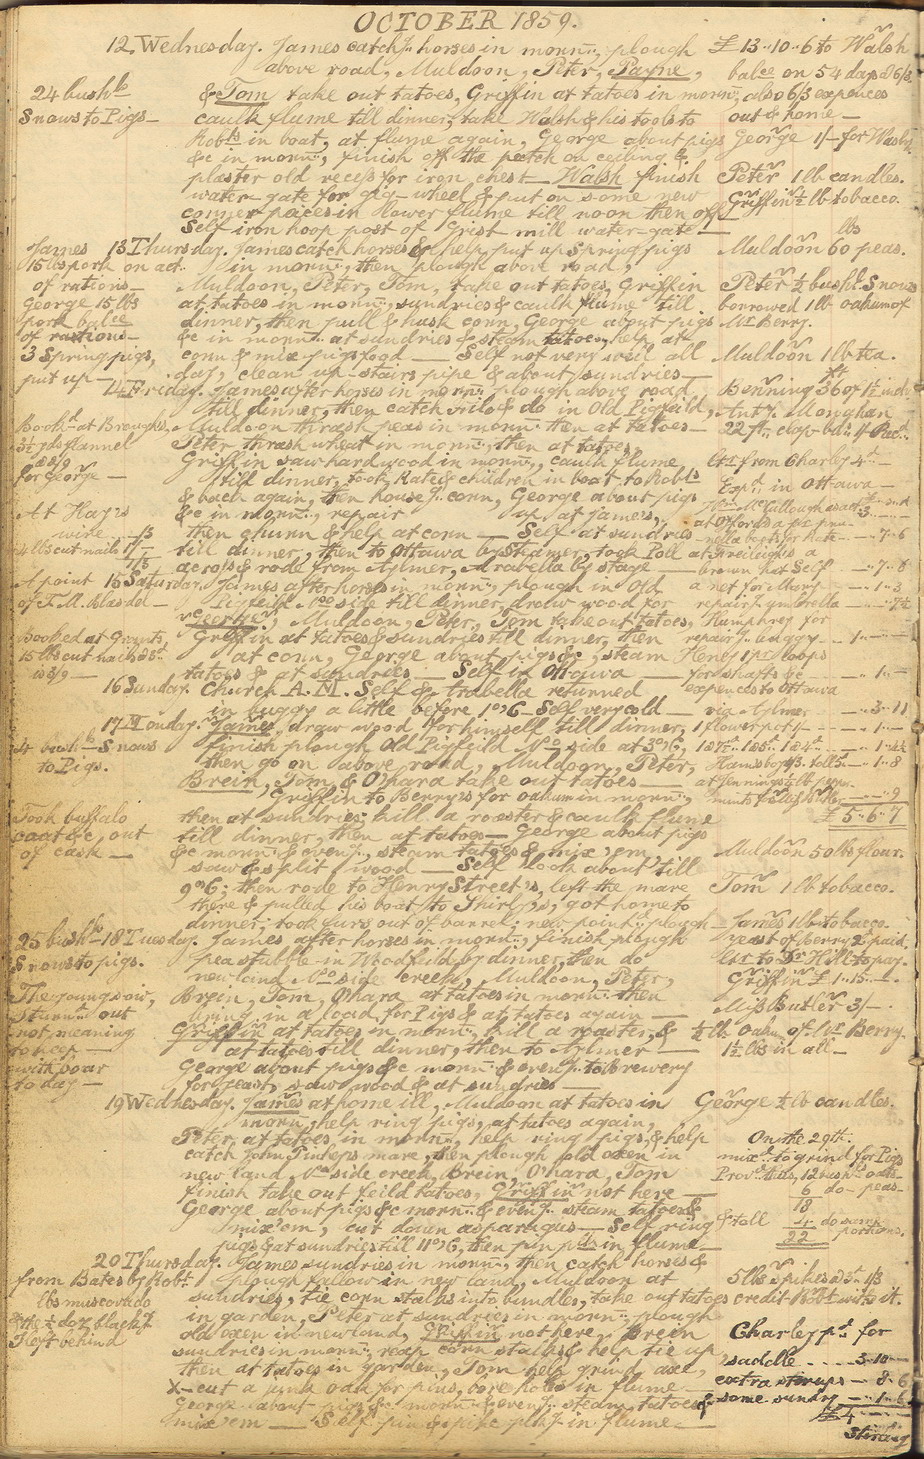 OCTOBER 1859.
12 Wednesday. James catch horses in morn, plough
above road, Muldoon, Peter, Payne,
& Tom take out tatoes, Griffin at tatoes in morn,
caulk flume till dinner, take Walsh & his tools to
Robts in boat, at flume again, George about pigs
&c in morn, finish off the patch on ceiling &
plaster old recess for iron chest — Walsh finish
water-gate for gig-wheel & put on some new
corner pieces in lower flume till noon then off
Self iron hoop post of Grist mill water-gate
24 bushls
Snows to Pigs —
£13..10..6 to Walsh
balce on 54 days @ 6/3
also 6/3 expences
out & home —
George 1/- for Wash
Peter 1 lb candles.
Griffin ½ lb tobacco.
13 Thursday. James catch horses & help put up Spring pigs
in morn, then plough above road,
Muldoon, Peter, Tom, take out tatoes, Griffin
at tatoes in morn, sundries & caulk flume till
dinner, then pull & husk corn, George about pigs
&c in morn at sundries & steam tatoes, help at
corn & mix pigs food — Self not very well all
day, clean up-stairs pipe & about sundries —
James
15 lbs pork on act
of rations —
George 15 lbs
pork balce
of rations —
3 Spring pigs,
put up —
lbs
Muldoon 60 peas.
Peter ½ bushl Snows
borrowed 1 lb oakum of
Mr Berry.
Muldoon 1 lb tea.
14 Friday. James after horses in morn plough above road
till dinner, then catch Milo & do in Old Pigfeild,
Muldoon thrash peas in morn then at tatoes —
Peter thrash wheat in morn, then at tatoes,
Griffin saw hard wood in morn, caulk flume
till dinner, took Kate & children in boat to Robts
& back again, then house corn, George about pigs
&c in morn, repair up at James's,
then churn & help at corn — Self at sundries
till dinner, then to Ottawa by Steamer, took Poll
across & rode from Aylmer, Arabella by stage —
Bookd at Broughs,
3½ yds flannel
for George —
At Hay's
wire — /5
4 lbs cut nails 1/-
1/5
Benning 36 of 1½ ind
Anty Monghan
22 ft clap-bds
Ltr from Charley 4th —
Expd in Ottawa —
brown hat Self — 7..6
a net for Mary — 1..3
repair umbrella — 7½
15 Saturday. James after horses in morn, plough in Old
Pigfeild No side till dinner, draw wood for
George, Muldoon, Peter, Tom take out tatoes,
Griffin at tatoes & sundries till dinner, then
at corn, George about pigs &c, steam
tatoes & at sundries — Self in Ottawa —
A point
of T. M. Blasdel —
Booked at Grants,
15 lbs cut nails
Humphrey for
repair buggy — 1..
Henry 1 pr loops
for shafts &c — 1..
expences to Ottawa
via Aylmer — 3..11
16 Sunday. Church A.M. Self & Arabella returned
in buggy a little before 1 o'C — Self very cold —
17 Monday. James, draw wood for himself till dinner,
finish plough Old Pigfeild No side at 3 o'C,
then go on above road, Muldoon, Peter,
Brein, Tom, & O'hara take out tatoes —
Griffin to Berry's for oakum in morn,
then at sundries, kill a roaster & caulk flume
till dinner, then at tatoes — George about pigs
&c morn & eveng, steam tatoes & mix 'em
saw & split wood — Self look about till
9 o'C, then rode to Henry Street's, left the mare
there & pulled his boat to Shirly's, got home to
dinner, took furs out of barrel, new point plough —
bushls Snows
to Pigs.
Took buffalo
coat &c, out
of cask —
1 flower pot
£5..6..7
Muldoon 50 lbs flour.
Tom 1 lb tobacco.
James 1 lb tobacco.
18 Tuesday. James after horses in morn, finish plough
pea stubble in Woodfeild by dinner, then do
new land No side creek, Muldoon, Peter,
Brein, Tom, O'hara at tatoes in morn then
bring in a load for Pigs & at tatoes again —
Griffin at tatoes in morn, kill a roaster, &
at tatoes till dinner, then to Aylmer —
George about pigs &c morn & eveng to Brewery
for yeast, saw wood & at sundries —
25 bushls
Snows to pigs.
The young sow,
I turn out
not meaning
to keep —
with boar
to day —
yeast of Berry 2d paid.
Ltr to Dr Hill to pay.
Griffin £1..15..
Miss Butler 3/-
½ lb oakm of Mr Berry.
1½ lbs in all —
19 Wednesday. James at home ill, Muldoon at tatoes in
morn, help ring pigs, at tatoes again,
Peter at tatoes in morn, help ring pigs, & help
catch John Tulips mare, then plough old oxen in
new land, No side creek, Brein, O'hara, Tom
finish take out feild tatoes, Griffin not here —
George about pigs &c morn & eveng steam tatoes &
mix 'em, cut down asparagus — Self ring
pigs & at sundries till 11 o'C, then pin in flume —
George ½ lb candles.
On the 29th.
mixd to grind for Pigs
12 bushls oats
6 do — peas —
18
& toll 4 do same portions.
22
20 Thursday. James sundries in morn, then catch horses &
plough fallow in new land, Muldoon at
sundries, tie corn stalks into bundles, take out tatoes
in garden, Peter at sundries in morn plough
old oxen in new land, Griffin not here, Brein
sundries in morn, reap corn stalks & help tie up
then at tatoes in garden, Tom help grind axe,
X-cut a junk oak for pins, bore holes in flume —
George about pigs &c morn & eveng steam tatoes &
mix 'em — Self pin & spike in flume —
from Bates by Robt
lbs muscovado
& the ½ doz black
I left behind
5 lbs spikes 1/3
credit Robt with it.
Charley pd for
saddle .... 3..10..
extra stirrups — 8..6
& some sundry — 1..6
£4
Stirling